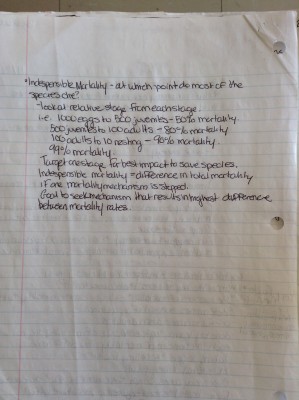 *Indespensible Mortality - at which point do most of the
species die?
- look at relative stage from each stage.
i.e. 1000 eggs to 500 juveniles - 50% mortality
500 juveniles to 100 adults - 80% mortality
100 adults to 10 nesting - 90% mortality
99% mortality.
Target one stage for best impact to save species.
Indespensible mortality = difference in total mortality
if one mortality mechanism is stopped.
Goal to seek mechanism that results in highest difference
between mortality rates.